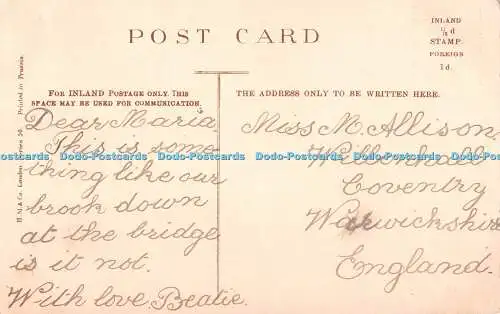 POST CARD
INLAND
½d
STAMP.
FOREIGN
1d.
FOR INLAND POSTAGE ONLY. THIS
SPACE MAY BE USED FOR COMMUNICATION.
THE ADDRESS ONLY TO BE WRITTEN HERE.
H.M.& Co., London. Series 50. Printed in Prussia.
Dear Maria,
This is some
thing like our
brook down
at the bridge
is it not.
With love. Beatie.
Miss M. Allison.
Willenhall
Coventry
Warwickshire
England.
Dodo-Postcards Dodo-Postcards Dodo-Postcards Dodo-Postcards Dodo-Postcards Dodo-Postcards